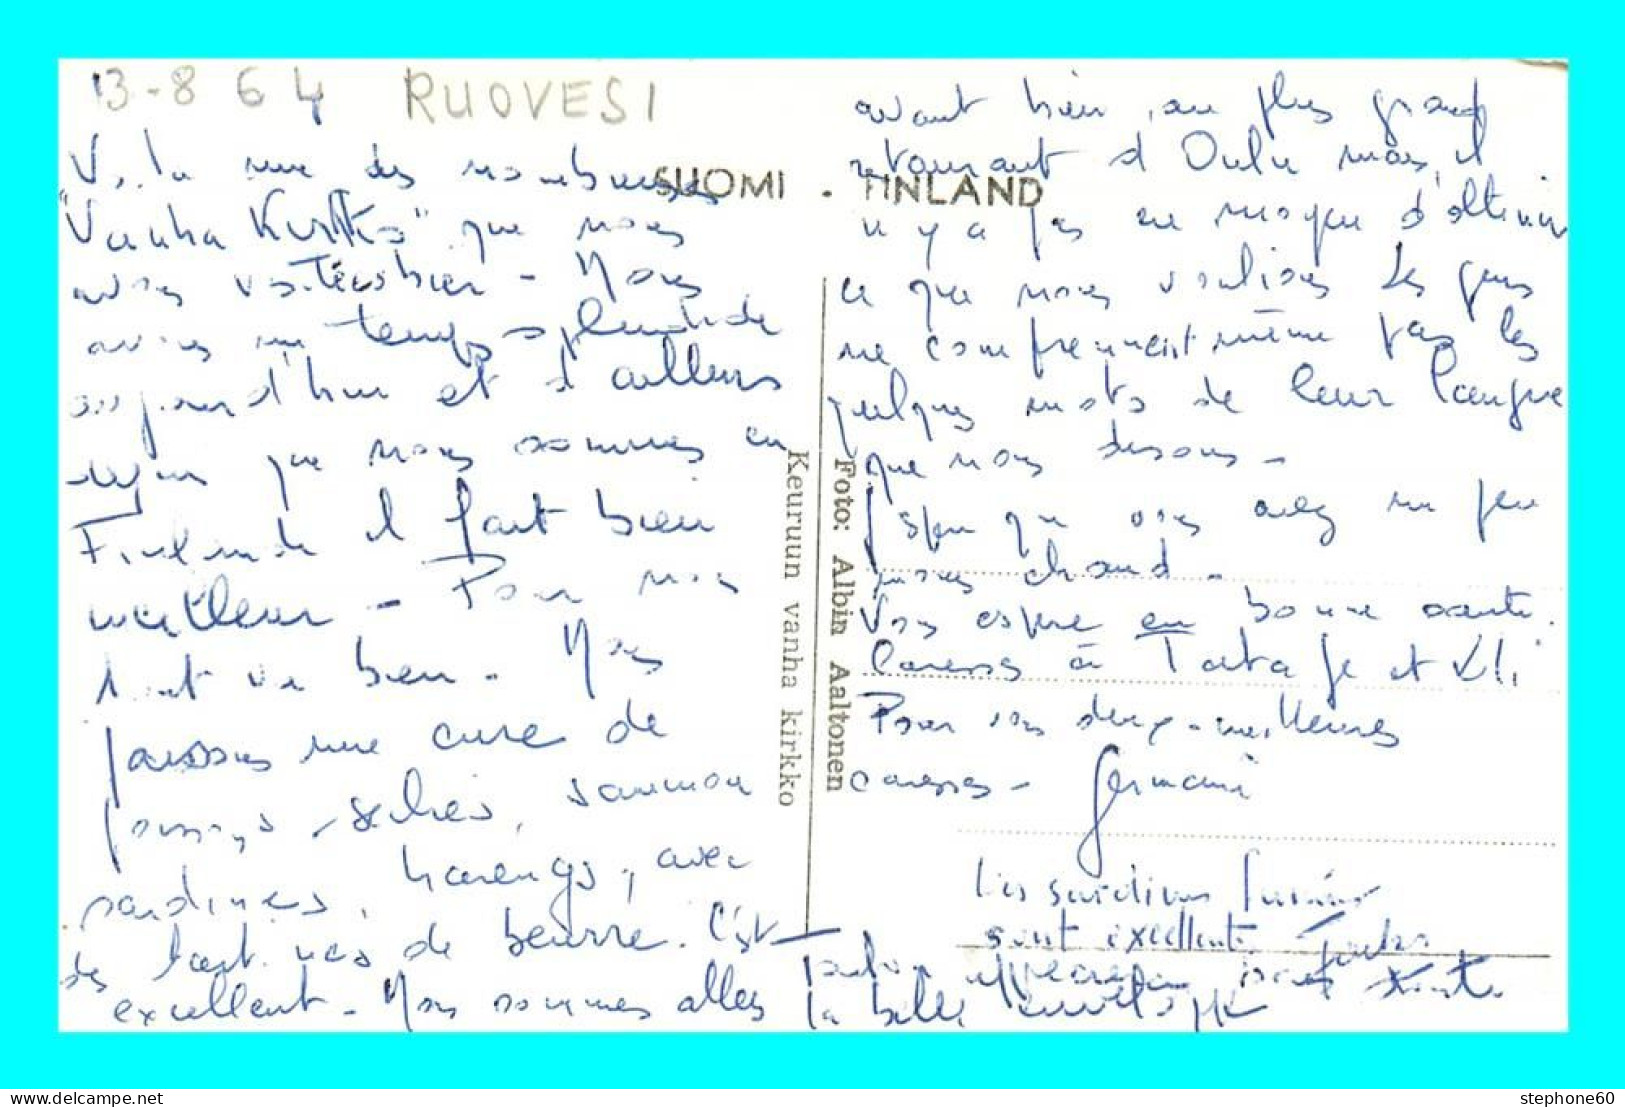 13-8 64 RUOVESI
Voilà une des nombreuses
"Vanha Kirkko" que nous
avons visitées hier - Nous
avons un temps splendide
aujourd'hui et d'ailleurs
depuis que nous sommes en
Finlande il fait bien
meilleur - Pour nous
tout va bien - Nous
faisons une cure de
poissons séchés, saumon
sardines, harengs, avec
des tartines de beurre. C'est
excellent - Nous sommes allés
SUOMI - FINLAND
Keuruun vanha kirkko
Foto: Albin Aaltonen
avant hier, au plus grand
restaurant d'Oulu mais il
n'y a pas eu moyen d'obtenir
ce que nous voulions les gens
ne comprennent même pas les
quelques mots de leur langue
que nous disons -
J'espère que vous avez un peu
moins chaud -
Vous espère en bonne santé.
Caresses à et
Pour vous deux meilleures
caresses - Germaine
Les sardines fumées
sont excellentes
la belle enveloppe
stephone60